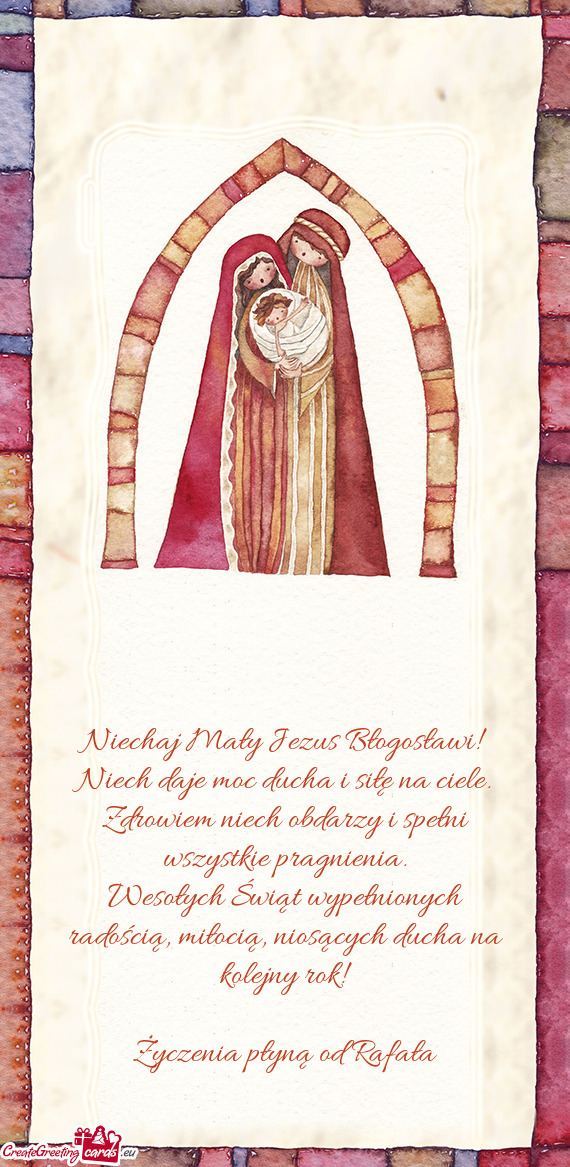 Niechaj Mały Jezus Błogosławi!
Niech daje moc ducha i siłę na ciele.
Zdrowiem niech obdarzy i spełni
wszystkie pragnienia.
Wesołych Świąt wypełnionych
radością, miłocią, niosących ducha na
kolejny rok!
Życzenia płyną od Rafała
CreateGreeting cards .eu